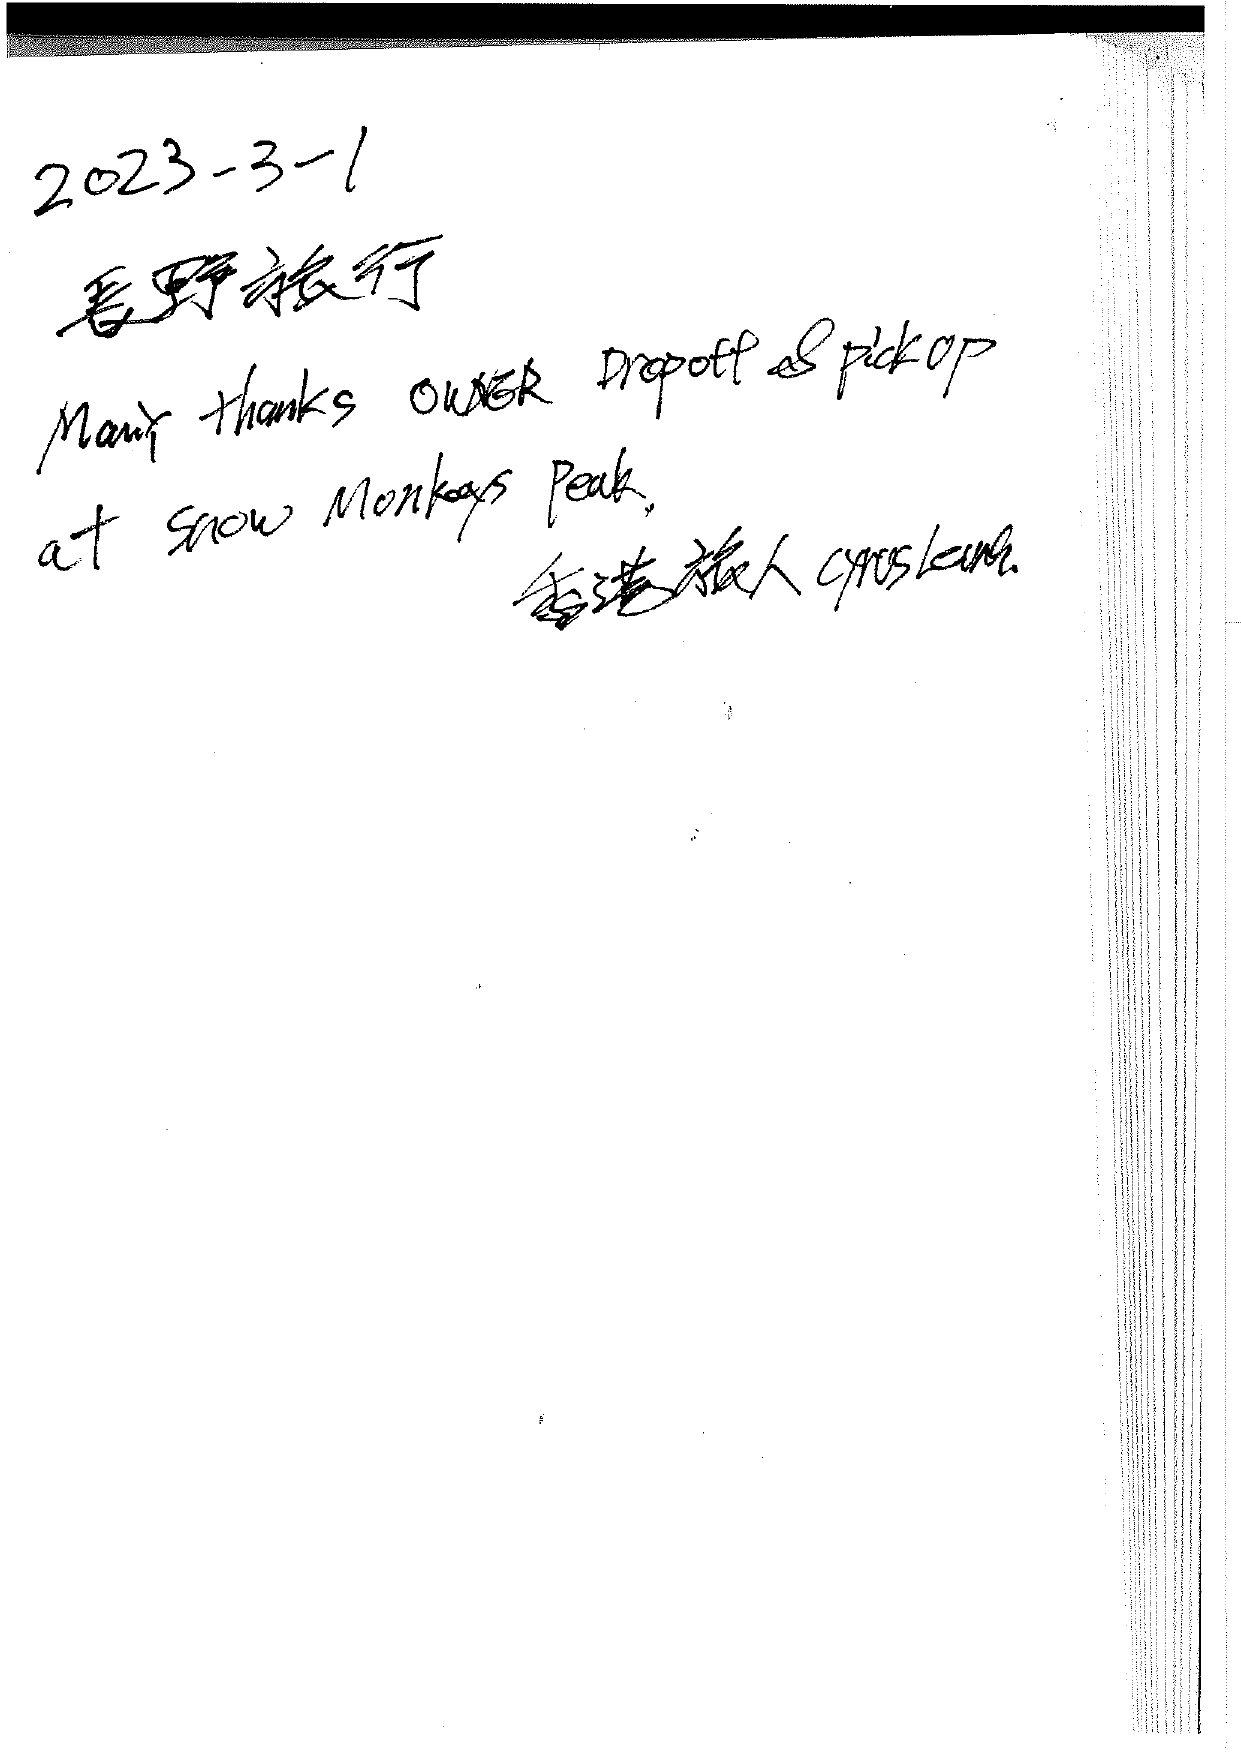 2023-3-1
長野旅行
Many thanks OWNER Dropoff & pick up
at snow Monkeys Peak,
香港旅人 Cyrus Leung.